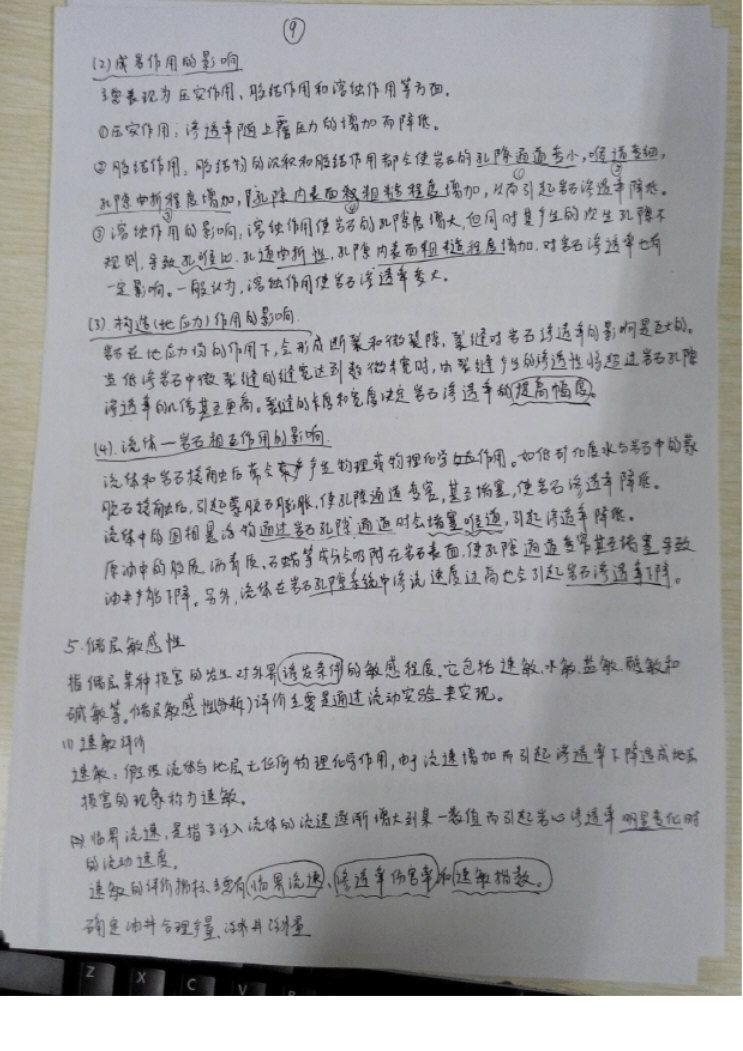 ⑨
(2)成岩作用的影响
主要表现为压实作用、胶结作用和溶蚀作用等方面。
①压实作用:渗透率随上覆压力的增加而降低。
②胶结作用:胶结物的沉积和胶结作用都会使岩石的孔隙通道变小,喉道变细,
孔隙曲折程度增加,孔隙内表面粗糙程度增加,从而引起岩石渗透率降低。
③溶蚀作用的影响:溶蚀作用使岩石的孔隙度增大,但同时其产生的次生孔隙不
规则,导致孔喉比、孔道曲折性、孔隙内表面粗糙程度增加,对岩石渗透率也有
一定影响。一般认为,溶蚀作用使岩石渗透率变大。
(3).构造(地应力)作用的影响.
岩石在地应力场的作用下,会形成断裂和微裂隙,裂缝对岩石渗透率的影响是巨大的。
当低渗岩石中微裂缝的缝宽达到数微米宽时,由裂缝产生的渗透性将超过岩石孔隙
渗透率的几倍甚至更高。裂缝的长度和宽度决定岩石渗透率的提高幅度。
(4).流体—岩石相互作用的影响.
流体和岩石接触后常会产生物理或物理化学作用。如低矿化度水与岩石中的蒙
脱石接触后,引起蒙脱石膨胀,使孔隙通道变窄,甚至堵塞,使岩石渗透率降低。
流体中的固相悬浮物通过岩石孔隙通道时会堵塞喉道,引起渗透率降低。
原油中的胶质、沥青质、石蜡等成分会吸附在岩石表面,使孔隙通道变窄甚至堵塞导致
油井产能下降。另外,流体在岩石孔隙系统中渗流速度过高也会引起岩石渗透率下降。
5.储层敏感性
指储层某种损害的发生对外界诱发条件的敏感程度。它包括速敏、水敏、盐敏、酸敏和
碱敏等。储层敏感性(分析)评价主要是通过流动实验来实现。
(1)速敏评价
速敏:假设流体与地层无任何物理化学作用,由于流速增加而引起渗透率下降造成地层
损害的现象称为速敏。
临界流速,是指当注入流体的流速逐渐增大到某一数值而引起岩心渗透率明显变化时
的流动速度。
速敏的评价指标主要有临界流速、渗透率伤害率和速敏指数。
确定油井合理产量、注水井注水量
Z X C V B